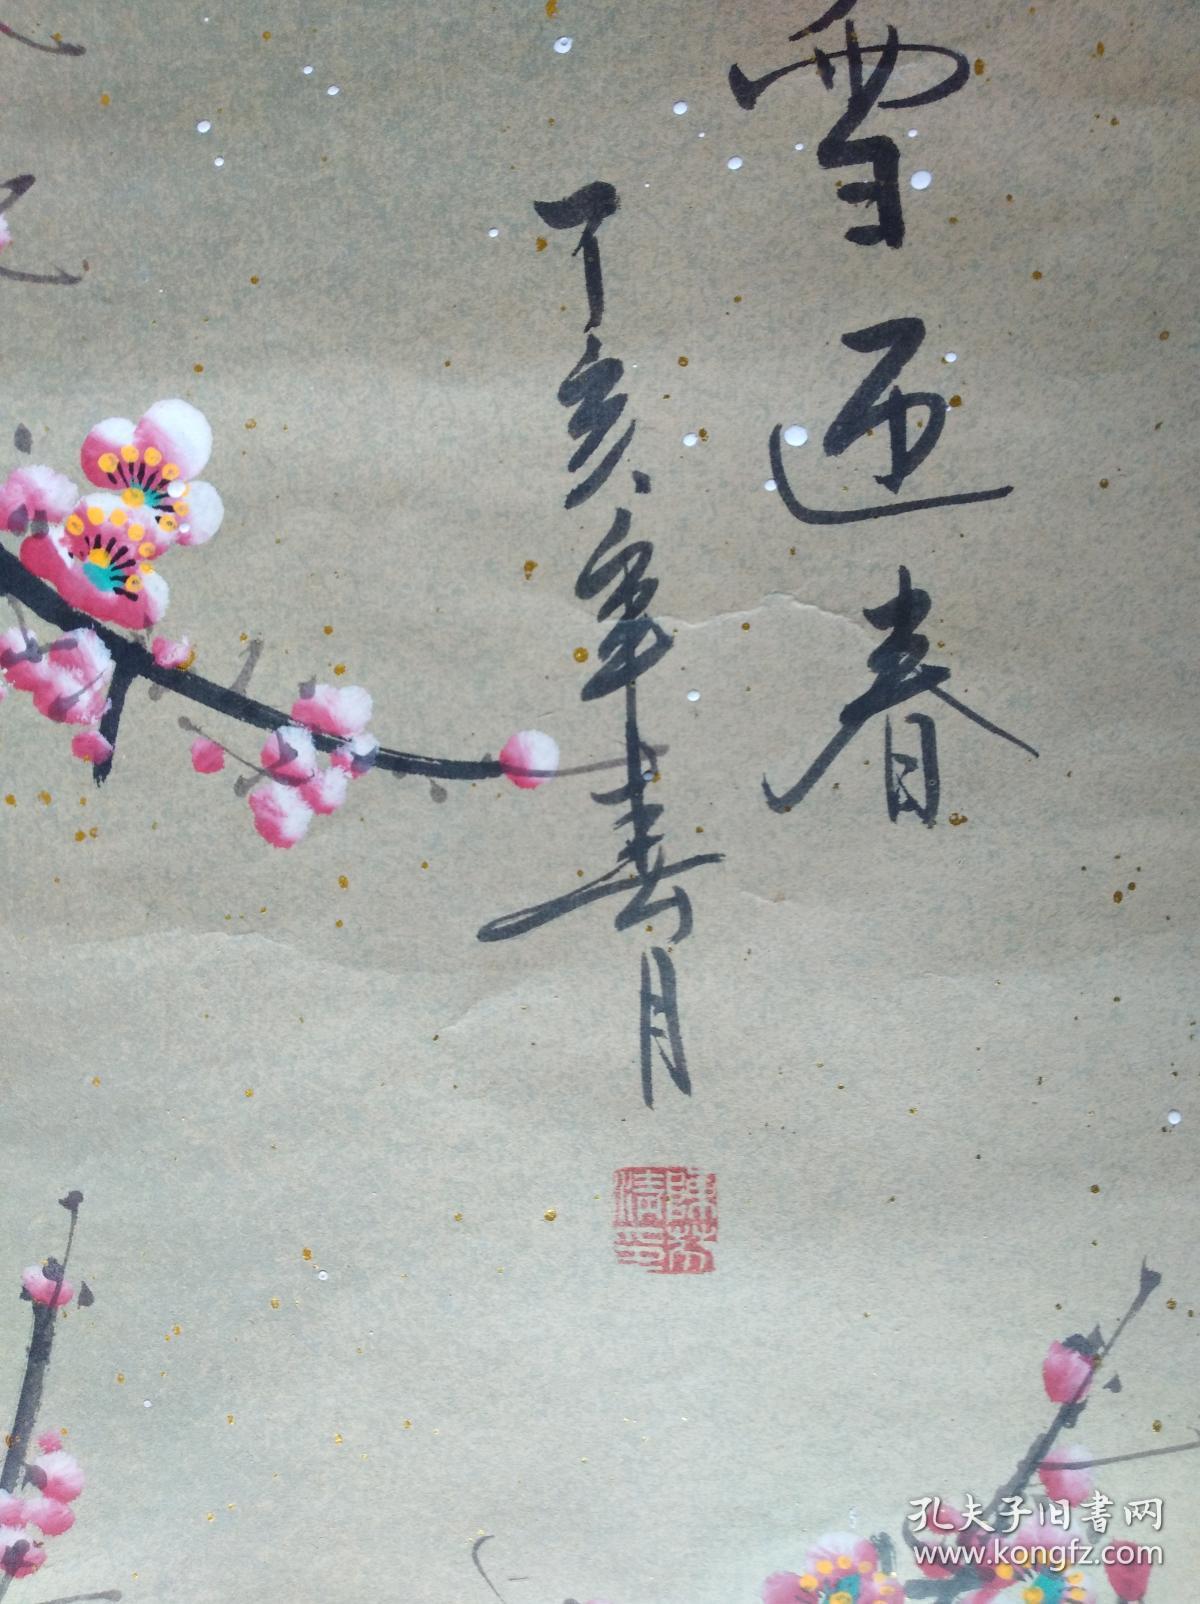 雪迎春
丁亥年春月
陳芳清印
孔夫子旧書网
www.kongfz.com